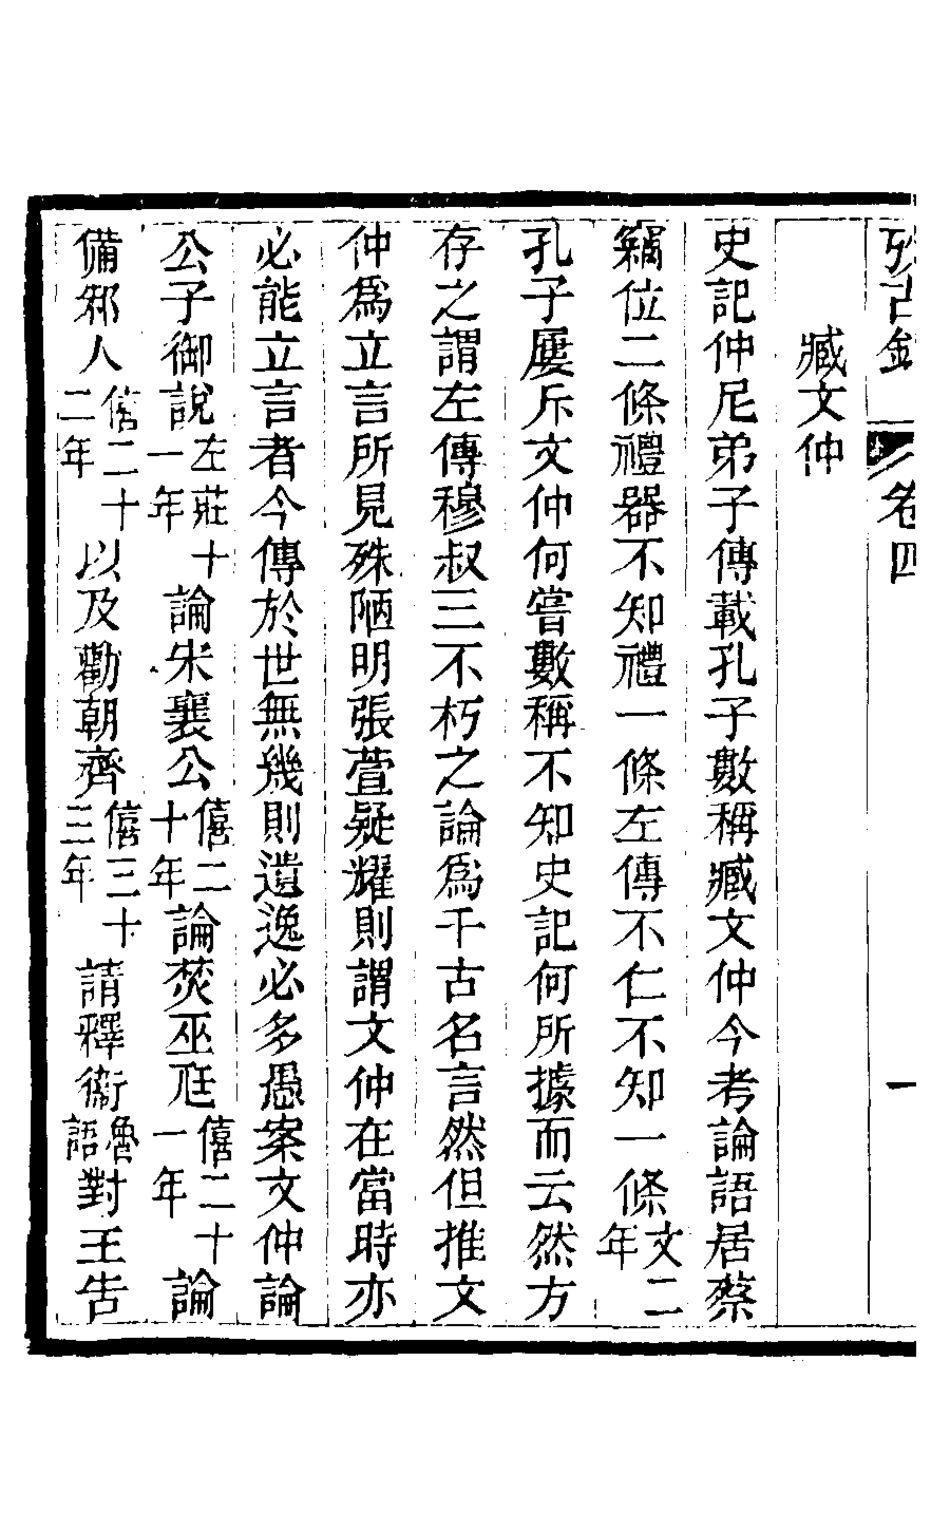 攷古錄　卷四　一
臧文仲
史記仲尼弟子傳載孔子數稱臧文仲今考論語居蔡
竊位二條禮器不知禮一條左傳不仁不知一條文二年
孔子屢斥文仲何嘗數稱不知史記何所據而云然方
存之謂左傳穆叔三不朽之論爲千古名言然但推文
仲爲立言所見殊陋明張萱疑耀則謂文仲在當時亦
必能立言者今傳於世無幾則遺逸必多愚案文仲論
公子御說左莊十一年論宋襄公僖二十年論焚巫尫僖二十一年論
備邾人僖二十二年以及勸朝齊僖三十三年請釋衞魯語對王告